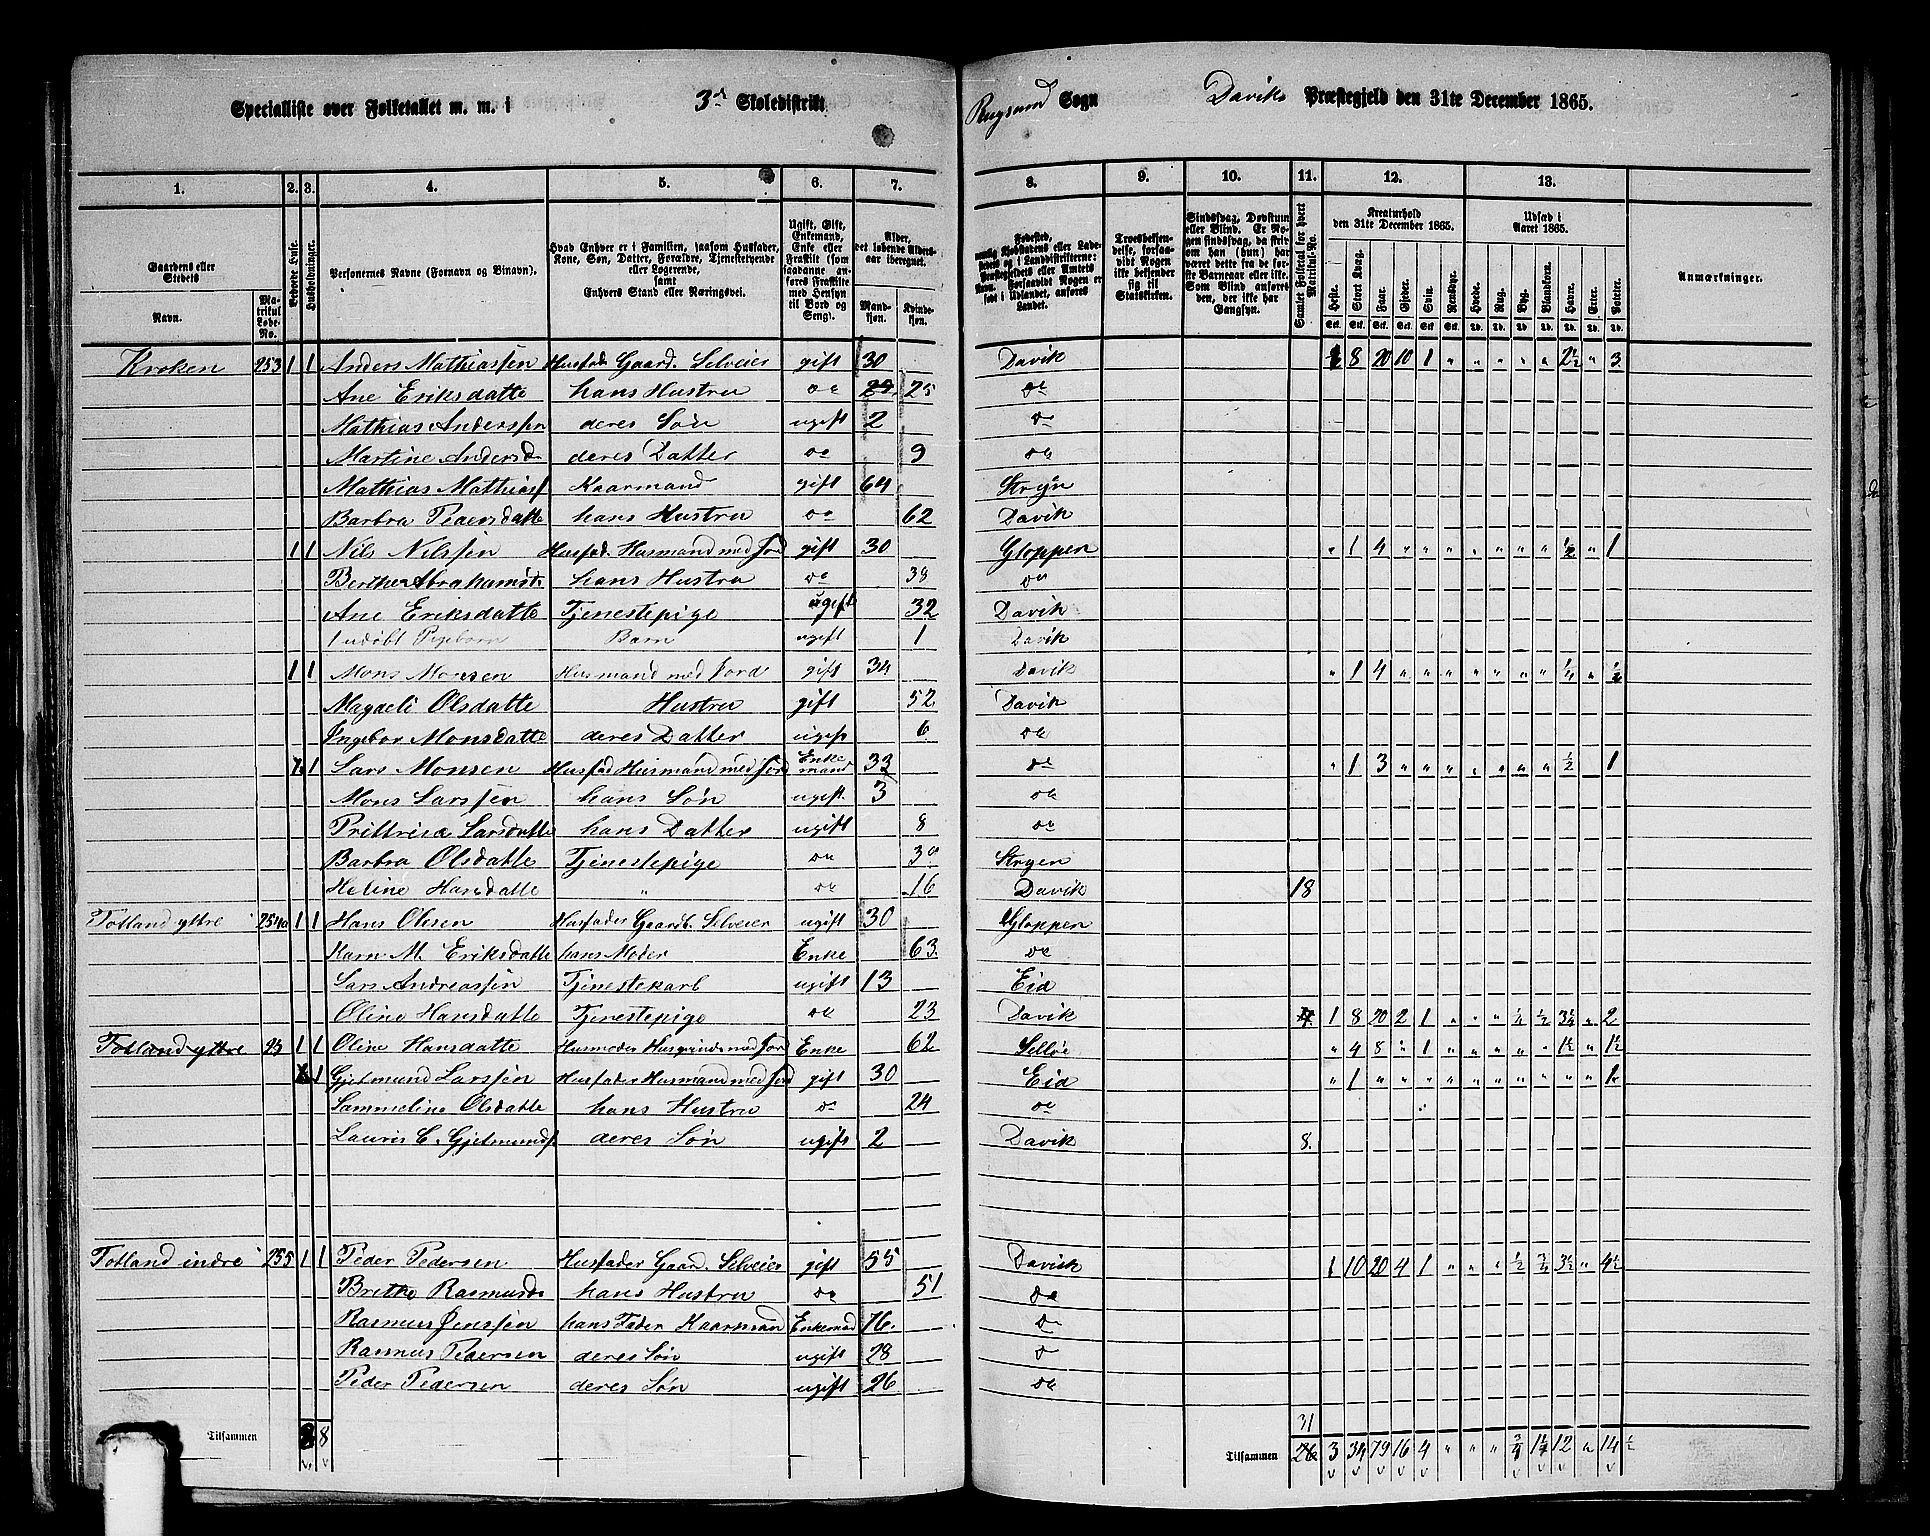 Specialliste over Folketallet m. m. i 3d Skoledistrikt Rugsund Sogn Daviks Præstegjeld den 31te December 1865.
1. 2. 3. 4. 5. 6. 7. 8. 9. 10. 11. 12. 13.
Gaardens eller Stedets
Navn.
Matrikul Løbe-No.
Beboede Huse.
Husholdninger.
Personernes Navne (Fornavn og Binavn).
Hvad Enhver er i Familien, saasom Husfader, Kone, Søn, Datter, Forældre, Tjenestetyende eller Logerende, samt Enhvers Stand eller Næringsvei.
Ugift, Gift, Enkemand, Enke eller Fraskilt (som saadanne anføres Fraskilte med Hensyn til Bord og Seng).
Alder, det løbende Alders-aar iberegnet.
Mand-kjøn. Kvinde-kjøn.
Troesbekjendelse, forsaavidt Nogen ikke bekjender sig til Statskirken.
Sindssvag, Døvstum eller Blind. Er Nogen sindssvag, da skrives om han (hun) har været dette fra de første Barneaar eller ikke. Som Blind anføres den, der ikke har Gangsyn.
Samlet Folketal for hvert Matrikul-No.
Kreaturhold den 31te December 1865.
Heste. Stort Kvæg. Faar. Gjeder. Svin. Rensdyr.
Udsæd i Aaret 1865.
Hvede. Rug. Byg. Blandkorn. Havre. Erter. Poteter.
Anmærkninger.
Kroken 253 1 1 Anders Mathiassen Husfad. Gaard. Selveier gift 30 Davik 8 20 10 1 " " " " " 2½ " 3
Ane Eriksdatte hans Hustru do 25 do
Mathias Anderssen deres Søn ugift 2 do
Martine Andersd deres Datter do 9 do
Mathias Mathiasf Kaarmand gift 64 Stryn
Barbra Pedersdatte hans Hustru do 62 Davik
1 1 Nils Nilssen Husfad. Husmand med Jord gift 30 Gloppen " 1 4 " " " " " " " ½ " 1
Berthe Abrahamsd. hans Hustru do 38 do
Ane Eriksdatte Tjenestepige ugift 32 Davik
1 udøbt Pigebarn Barn ugift 1 Davik
1 1 Mons Monsen Husmand med Jord gift 34 Davik " 1 4 " " " " " " " ¼ " ½
Magdeli Olsdatte Hustru gift 52 Davik
Ingebor Monsdatte deres Datter ugift 6 do
1 Lars Monsen Husfad Husmand med Jord Enkemand 33 do " 1 3 " " " " " " " ½ " 1
Mons Larssen hans Søn ugift. 3 do
Larsdatte hans Datter ugift 8 do
Barbra Olsdatte Tjenestepige do 30 Stryen
Heline Hansdatte " do 16 Davik 18
Totland yttre 254 1 1 Hans Olesen Husfader Gaardb. Selveier ugift 30 Gloppen
Karn M. Eriksdatte hans Moder Enke 63. do
Lars Andreassen Tjenestekarl ugift 13 Eid
Oline Hansdatte Tjenestepige do 23 Davik 1 8 20 2 1 " " " ¼ ½ 3¼ " 2
Totland yttre 25 1 1 Oline Hansdatte Husmoder med Jord Enke 62 Selløe " 4 8 " 1 " " " " " 1½ " 1½
1 Gjetmund Larssen Husfader Husmand med Jord gift 30 Eid " 1 " " " " " " " " " " 1
Sammeline Olsdatte hans Hustru do 24 do
Lauris C. Gjetmundsf deres Søn ugift 2 Davik 8.
Totland indre 255 1 1 Peder Pedersen Husfader Gaard. Selveier gift 55 Davik 1 10 20 4 1 " " " ½ ¾ 3½ " 4½
Brithe Rasmusd. hans Hustru do 51 do
Rasmus Jenssen hans Fader Kaarmand Enkemad 76. do
Rasmus Pedersen deres Søn ugift 28 do
Peder Pedersen deres Søn ugift 26 do
31
Tilsammen 8 8 Tilsammen 26 3 34 79 16 4 " " " ¾ 1¼ 12 " 14½